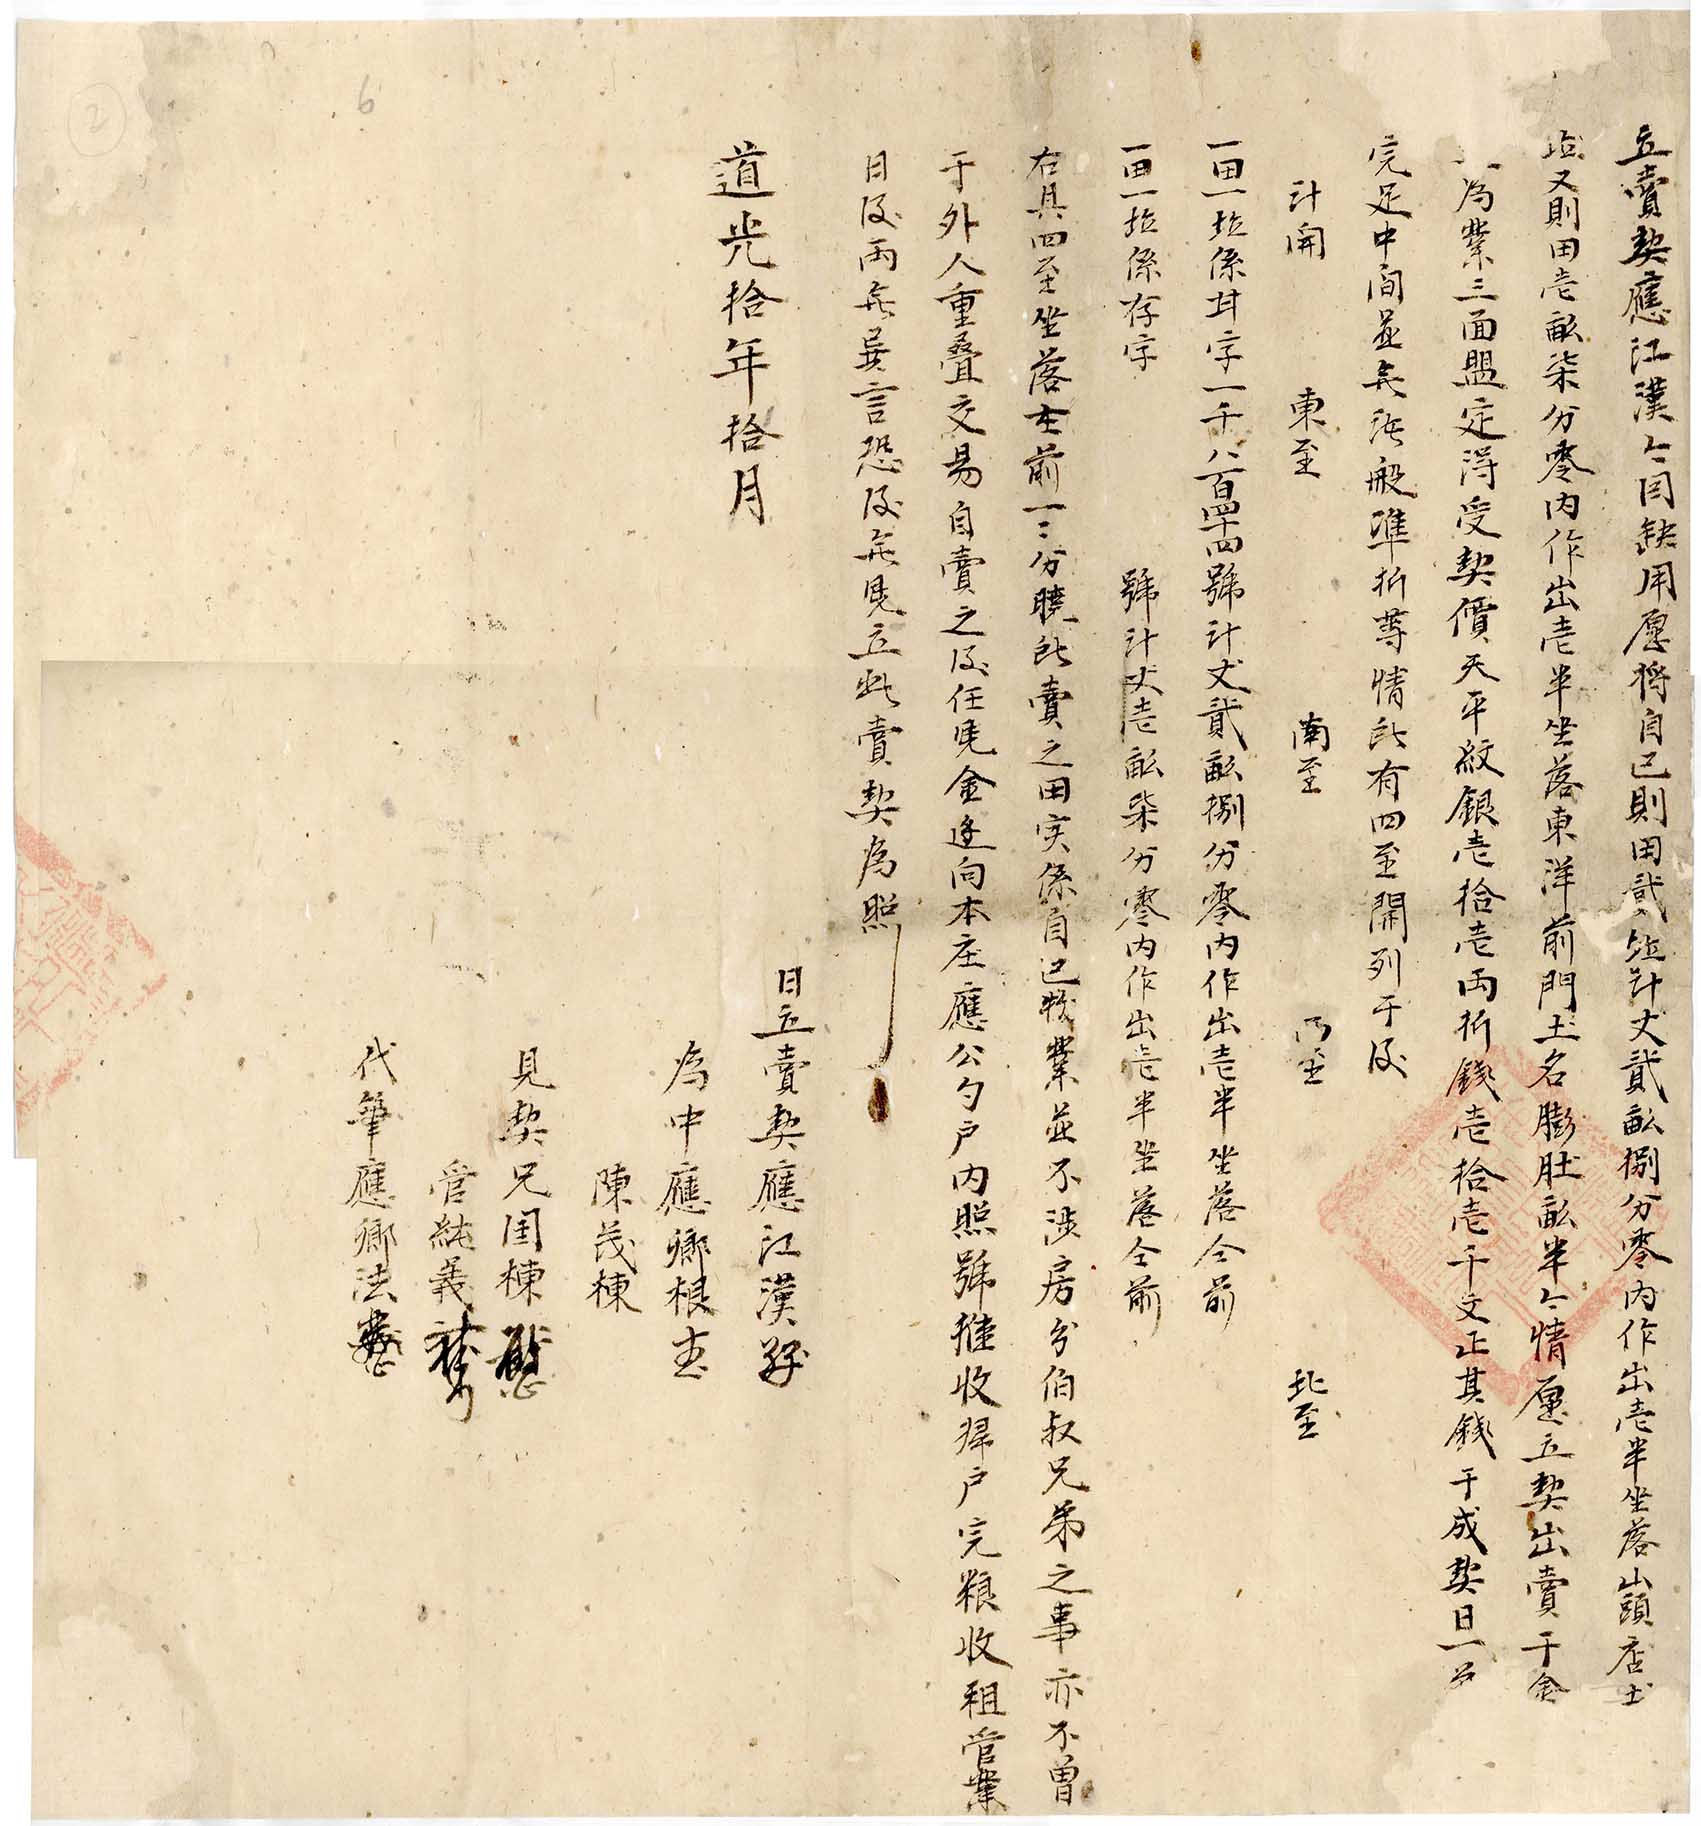 立賣契應江漢今因缺用愿將自己則田貳坵計丈貳畝捌分零內作出壱半坐落山頭店土
坵又則田壱畝柒分零內作出壱半坐落東洋前門土名膨肚畝半今情愿立契出賣于金
為業三面盟定淂受契價天平紋銀壱拾壱両折錢壱拾壱千文正其錢于成契日一
完足中間並無諸般準折等情所有四至開列于后
計開 東至 南至 西至 北至
一田一坵係甘字一千八百四十四號計丈貳畝捌分零內作出壱半坐落仝前
一田一坵係存字 號計丈壱畝柒分零內作出壱半坐落仝前
右具四至坐落在前一二分曉所賣之田实係自己物業並不涉房分伯叔兄弟之事亦不曽
于外人重叠交易自賣之后任凴金邊向本庄應公勺户内照號推收㱕户完粮收租管業
日后両無異言恐后無凴立此賣契為照
道光拾年拾月
日立賣契應江漢
為中應鄉根
陳茂棟
見契兄国棟
管純義
代筆應鄉法
2
6